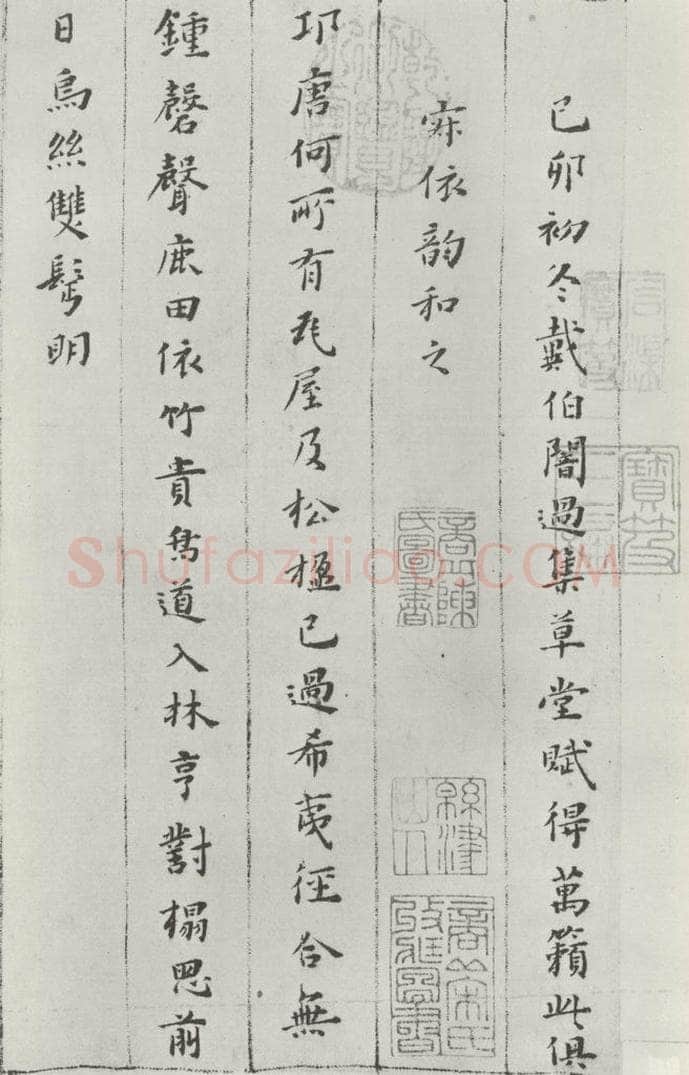 己卯初冬戴伯闇過集草堂賦得萬籟此俱
寂依韵和之
邛唐何所有瓦屋及松楹已過希夷徑合無
鍾磬聲鹿田依竹貴鳥道入林亨對榻思前
日烏絲雙鬢明
緜津山人
Shufaziliao.COM